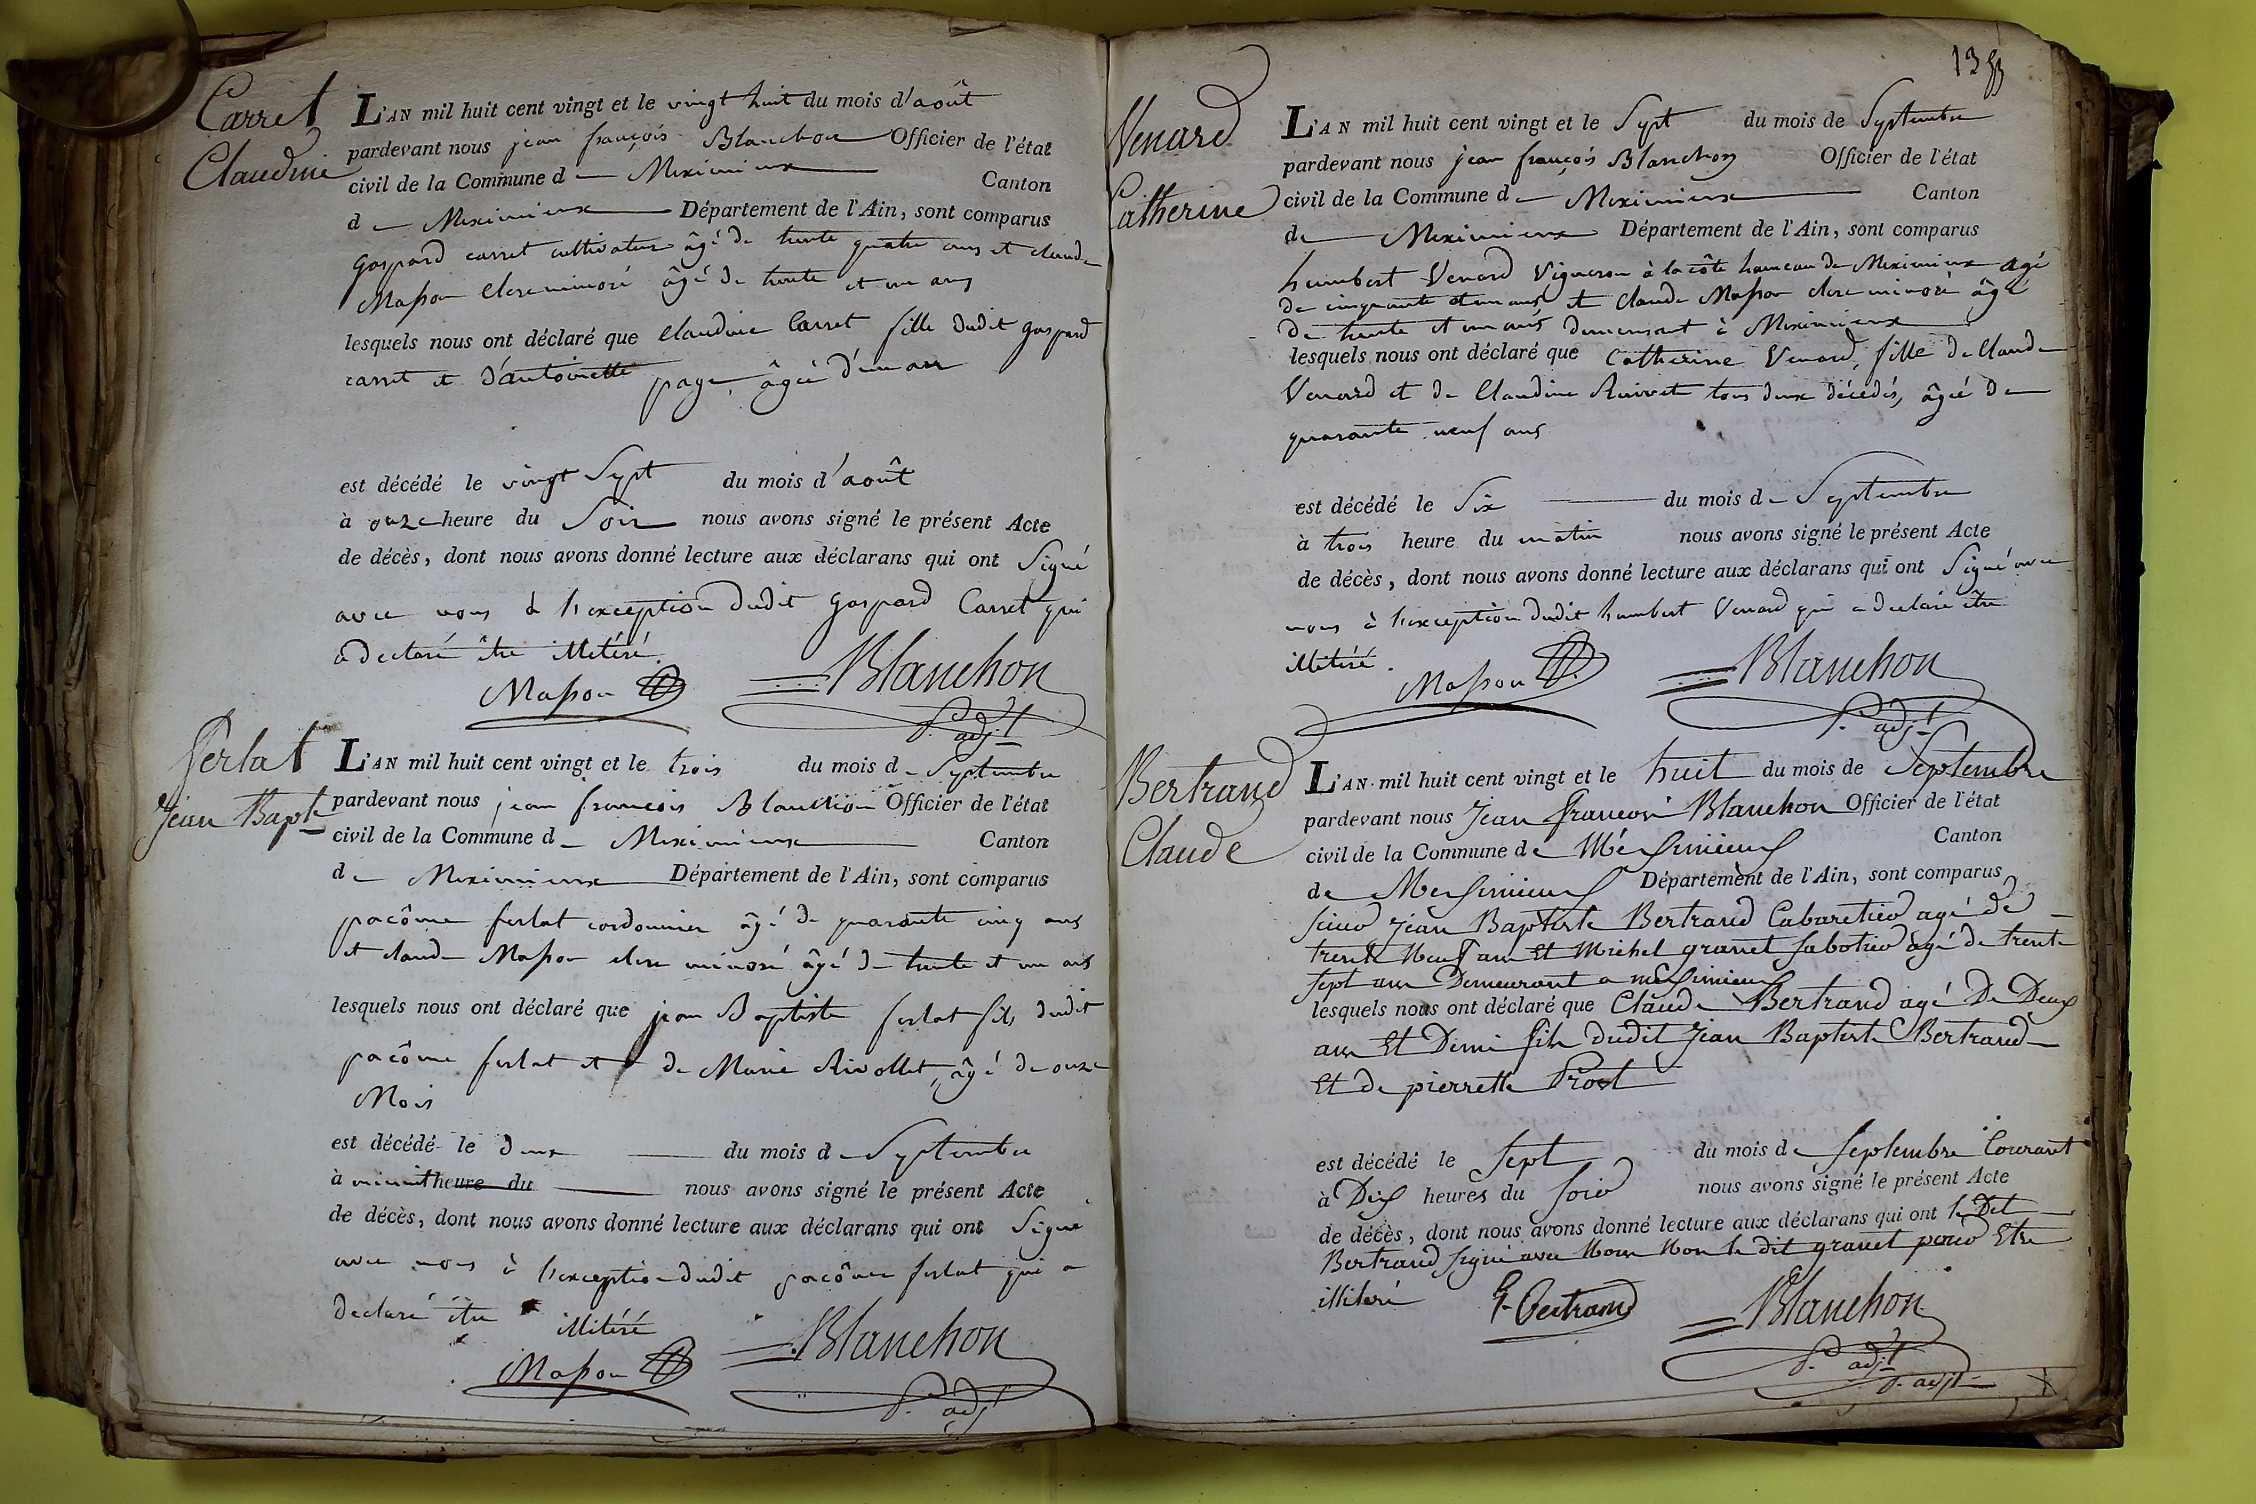 Carret
Claudine
L'AN mil huit cent vingt et le vingt huit du mois d'août
pardevant nous jean françois Blanchon Officier de l'état
civil de la Commune d Meximieux Canton
d Meximieux Département de l'Ain, sont comparus
gaspard carret cultivateur âgé de trente quatre ans et claude
Masson clerc minoré âgé de trente et un ans
lesquels nous ont déclaré que claudine Carret fille dudit gaspard
carret et d'antoinette page, âgée d'un an
est décédé le vingt Sept du mois d'août
à onze heure du Soir nous avons signé le présent Acte
de décès, dont nous avons donné lecture aux déclarans qui ont Signé
avec nous à l'exception dudit gaspard Carret qui
a declaré être illitéré.
Masson Blanchon
P. adjt
ferlat
Jean Bapte
L'AN mil huit cent vingt et le trois du mois de Septembre
pardevant nous jean françois Blanchon Officier de l'état
civil de la Commune de Meximieux Canton
de Meximieux Département de l'Ain, sont comparus
pacôme ferlat cordonnier âgé de quarante cinq ans
et claude Masson clerc minoré âgé de trente et un ans
lesquels nous ont déclaré que jean Baptiste ferlat fils dudit
pacôme ferlat et de Marie Rivollet, âgé de onze
Mois
est décédé le deux du mois de Septembre
à minuit heure du nous avons signé le présent Acte
de décès, dont nous avons donné lecture aux déclarans qui ont Signé
avec nous à l'exception dudit pacôme ferlat qui a
declaré être illitéré
Masson Blanchon
P. adjt
13
Venard
Catherine
L'AN mil huit cent vingt et le Sept du mois de Septembre
pardevant nous jean françois Blanchon Officier de l'état
civil de la Commune de Meximieux Canton
de Meximieux Département de l'Ain, sont comparus
humbert Venard Vigneron à la côte hameau de Meximieux agé
de cinquante et un ans et claude Masson clerc minoré âgé
de trente et un ans demeurant à Meximieux
lesquels nous ont déclaré que Catherine Venard, fille de Claude
Venard et de Claudine tous deux décédés, âgée de
quarante neuf ans
est décédé le Six du mois de Septembre
à trois heure du matin nous avons signé le présent Acte
de décès, dont nous avons donné lecture aux déclarans qui ont Signé avec
nous à l'exception dudit humbert Venard qui a declaré être
illitéré.
Masson Blanchon
P. adjt
Bertrand
Claude
L'AN mil huit cent vingt et le huit du mois de Septembre
pardevant nous Jean françois Blanchon Officier de l'état
civil de la Commune de Méssimieux Canton
de Messimieux Département de l'Ain, sont comparus
Jean Baptiste Bertrand Cabaretier agé de
trente Neuf ans Et Michel granet Sabotier agé de trente
sept ans Demeurant a méssimieux
lesquels nous ont déclaré que Claude Bertrand agé De Deux
ans Et Demi fils dudit Jean Baptiste Bertrand
Et de pierrette Prost
est décédé le Sept du mois de Septembre Courant
à Dix heures du soir nous avons signé le présent Acte
de décès, dont nous avons donné lecture aux déclarans qui ont le Dit
Bertrand signé avec Nous Non le dit granet pour Etre
illiteré Bertrand Blanchon
P. adjt
P. adjt